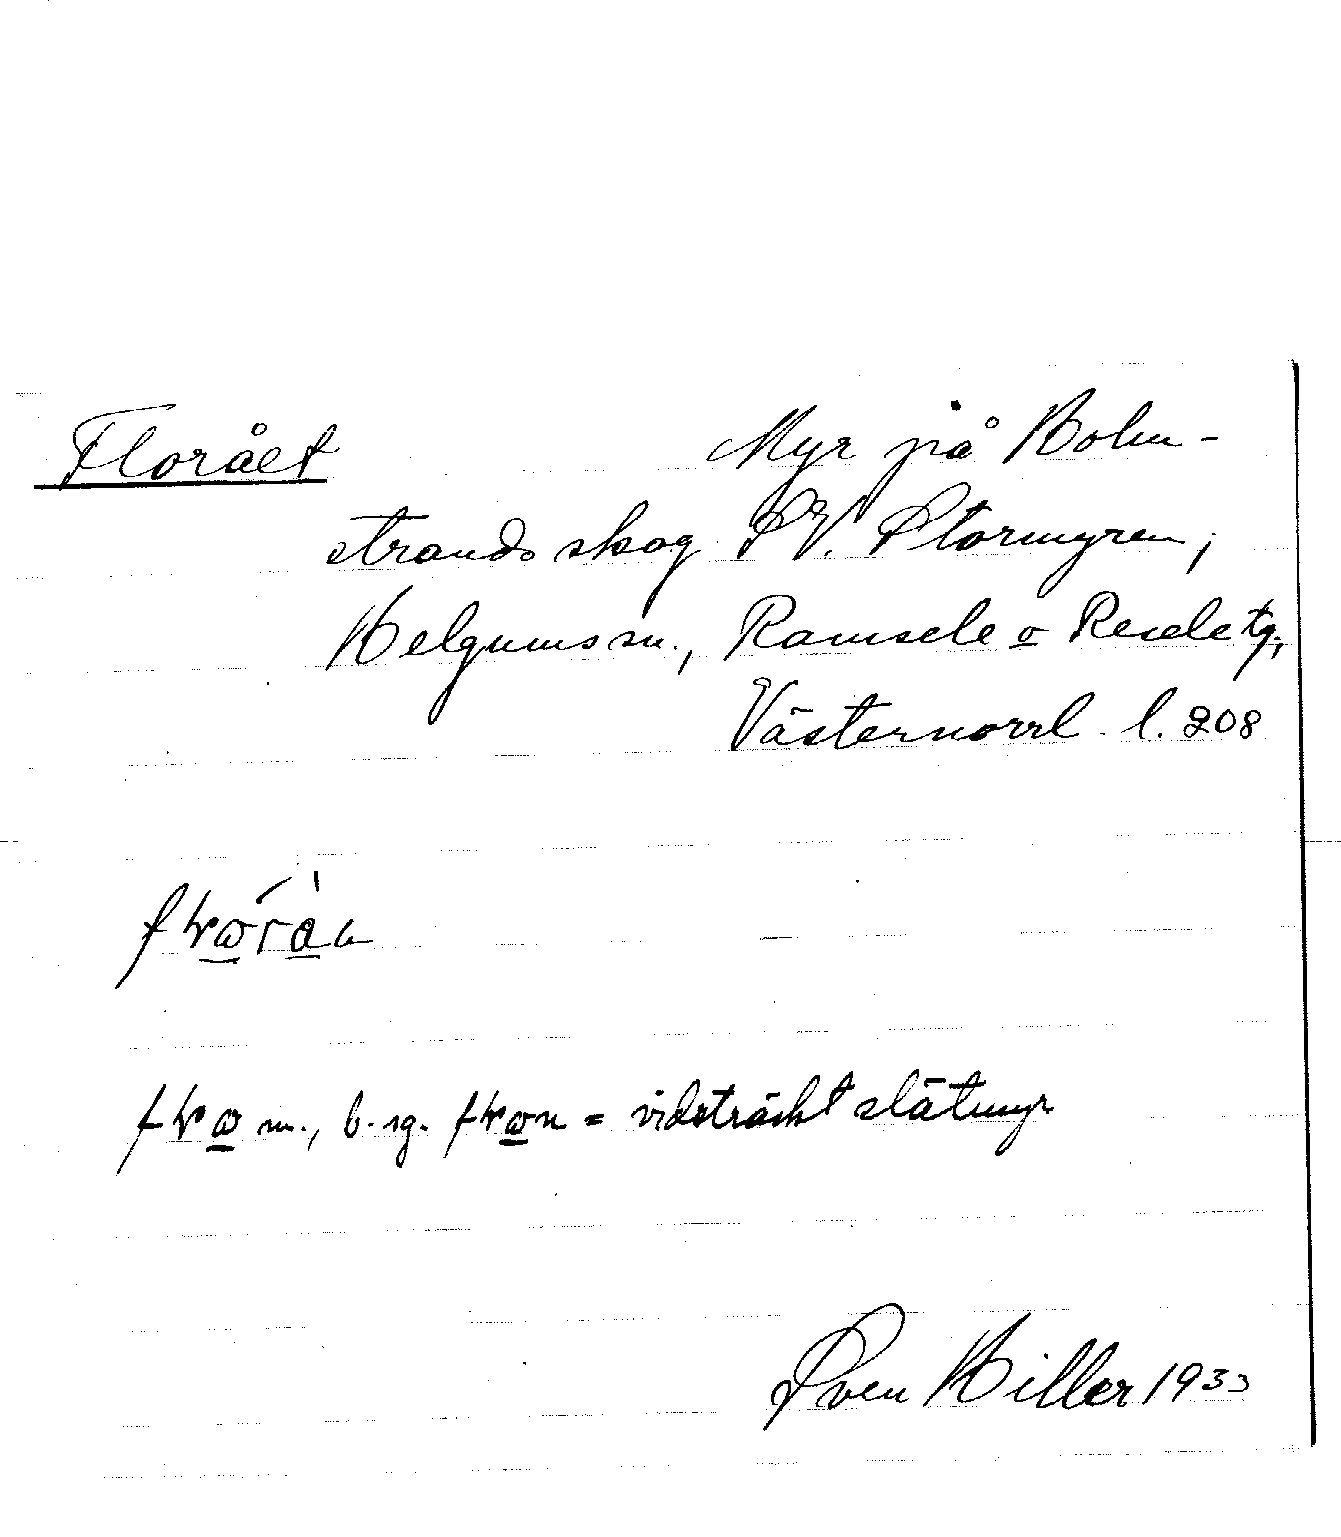 Florået Myr på Holm-
strands skog SV. Stormyren,
Helgums sn., Ramsele o Resele tg.,
Västernorrl. l. 208
m., b. sg. = vidsträckt slåtmyr
Sven Hiller 1933